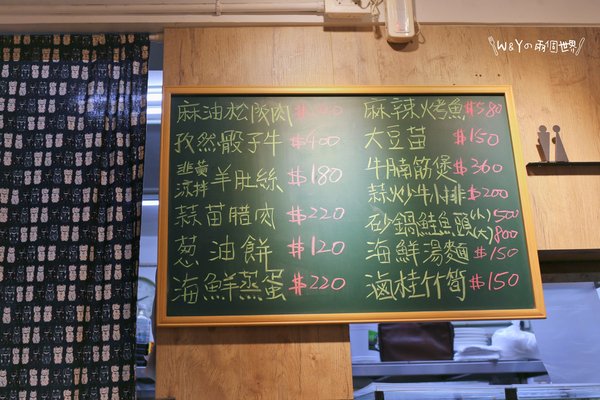 W&Yの兩個世界
麻油松阪肉
孜然骰子牛 $400
韭黃涼拌羊肚絲 $180
蒜苗腊肉 $220
葱油餅 $120
海鮮蒸蛋 $220
麻辣烤魚 $580
大豆苗 $150
牛腩筋煲 $360
蒜炒牛小排 $200
砂鍋鮭魚頭 (小) 500 (大) 800
海鮮湯麵 $150
滷桂竹筍 $150